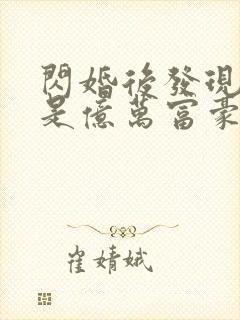 閃婚後發現
是億萬富豪
崔婧娥